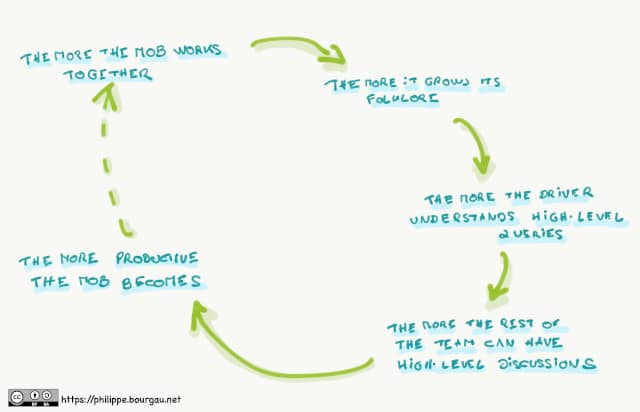 THE MORE THE MOB WORKS
TOGETHER
THE MORE IT GROWS ITS
FOLKLORE
THE MORE THE DRIVER
UNDERSTANDS HIGH-LEVEL
QUERIES
THE MORE THE REST OF
THE TEAM CAN HAVE
HIGH-LEVEL DISCUSSIONS
THE MORE PRODUCTIVE
THE MOB BECOMES
https://philippe.bourgau.net